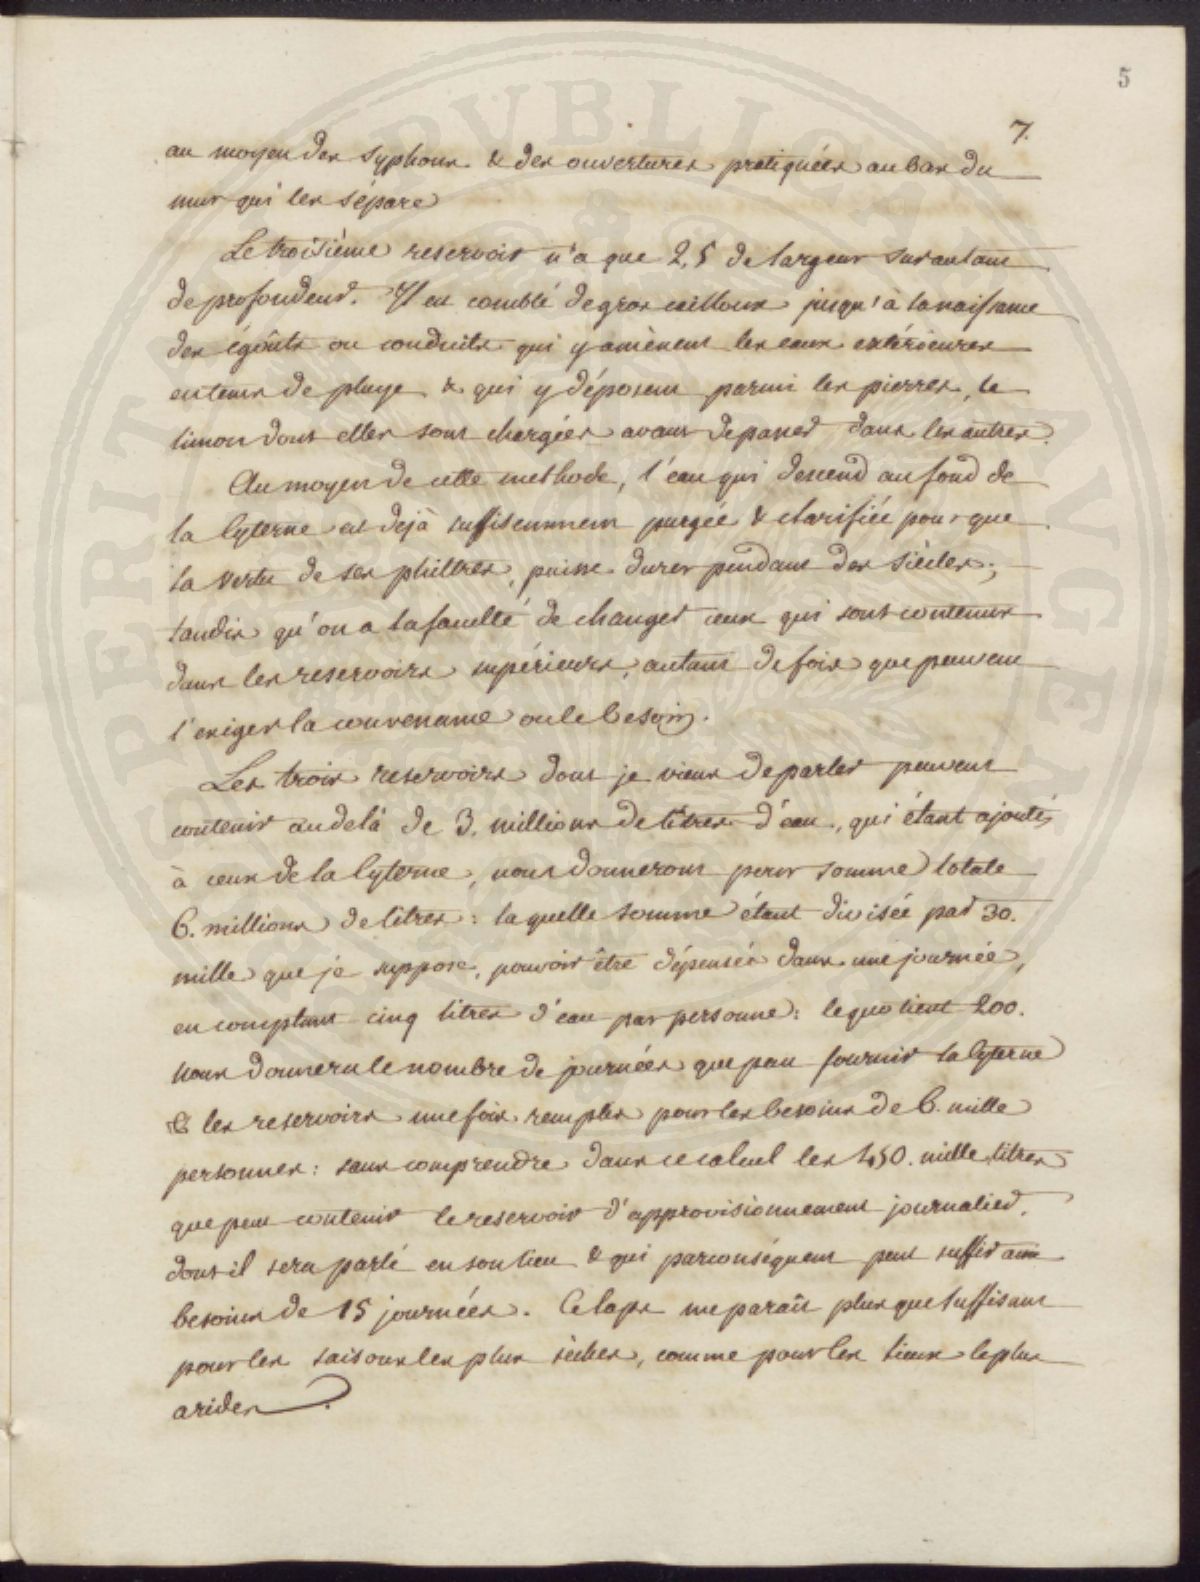 5
7.
au moyen des syphons & des ouvertures pratiquées au bas du
mur qui les sépare
Le troisième reservoir n'a que 2,5 de largeur sur autant
de profondeur. Il est comblé de gros cailloux jusqu'à la naissance
des égoûts ou conduits qui y amènent les eaux extérieures
en tems de pluye & qui y déposent parmi les pierres, le
limon dont elles sont chargées avant de passer dans les autres.
Au moyen de cette methode, l'eau qui descend au fond de
la Cyterne est dejà suffisemment purgée & clarifiée pour que
la vertu de ses philtres, puisse durer pendant des siècles;
tandis qu'on a la faculté de changer ceux qui sont contenus
dans les reservoirs supérieurs, autant de fois que peuvent
l'exiger la convenance ou le besoin.
Les trois reservoirs dont je viens de parler peuvent
contenir au delà de 3. millions de litres d'eau, qui étant ajoutés
à ceux de la Cyterne, nous donneront pour somme totale
6. millions de litres: laquelle somme étant divisée par 30.
mille que je suppose, pouvoir être dépensés dans une journée,
en comptant cinq litres d'eau par personne: le quotient 200.
nous donnera le nombre de journées que peut fournir la Cyterne
& les reservoirs une fois remplis pour les besoins de 6. mille
personnes: sans comprendre dans ce calcul les 450. mille litres
que peut contenir le reservoir d'approvisionnement journalier.
dont il sera parlé en son lieu & qui par conséquent peut suffir aux
besoins de 15 journées. Ce laps me paraît plus que suffisant
pour les saisons les plus sèches, comme pour les lieux le plus
arides.
PERITATE PVBLICAM AVGE